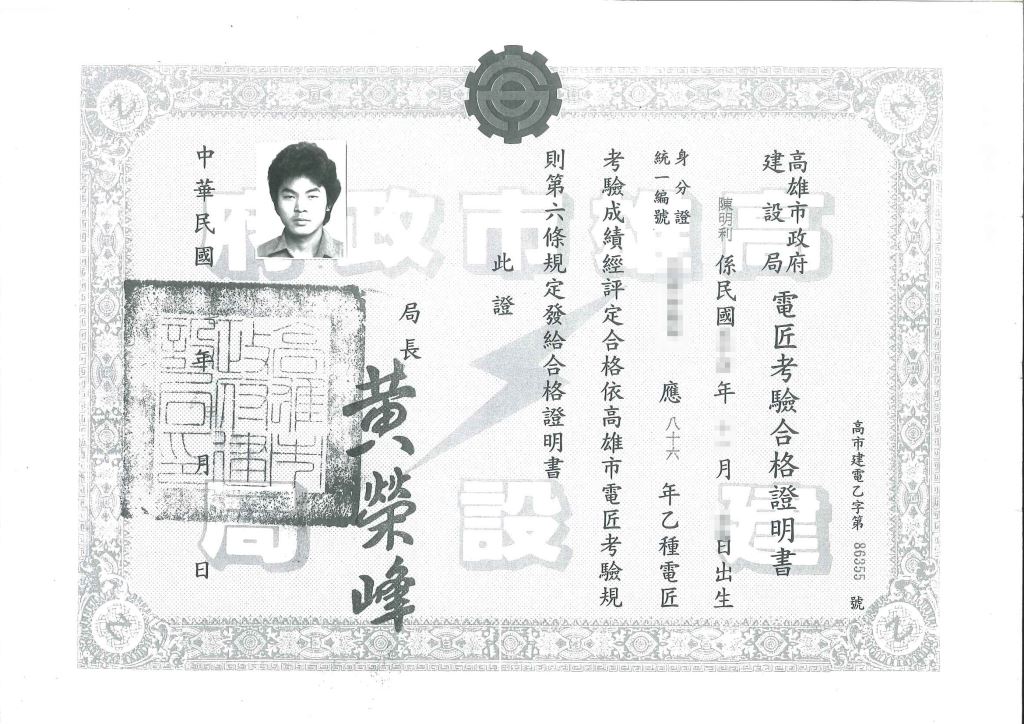 高市建電乙字第 86355 號
高雄市政府建設局電匠考驗合格證明書
陳明利 係民國 年 十二 月 日出生
身分證統一編號 應 八十六 年乙種電匠
考驗成績經評定合格依高雄市電匠考驗規
則第六條規定發給合格證明書
此證
局長 黃榮峰
中華民國 年 月 日
高雄市政府
建設局
高雄市政府建設局印